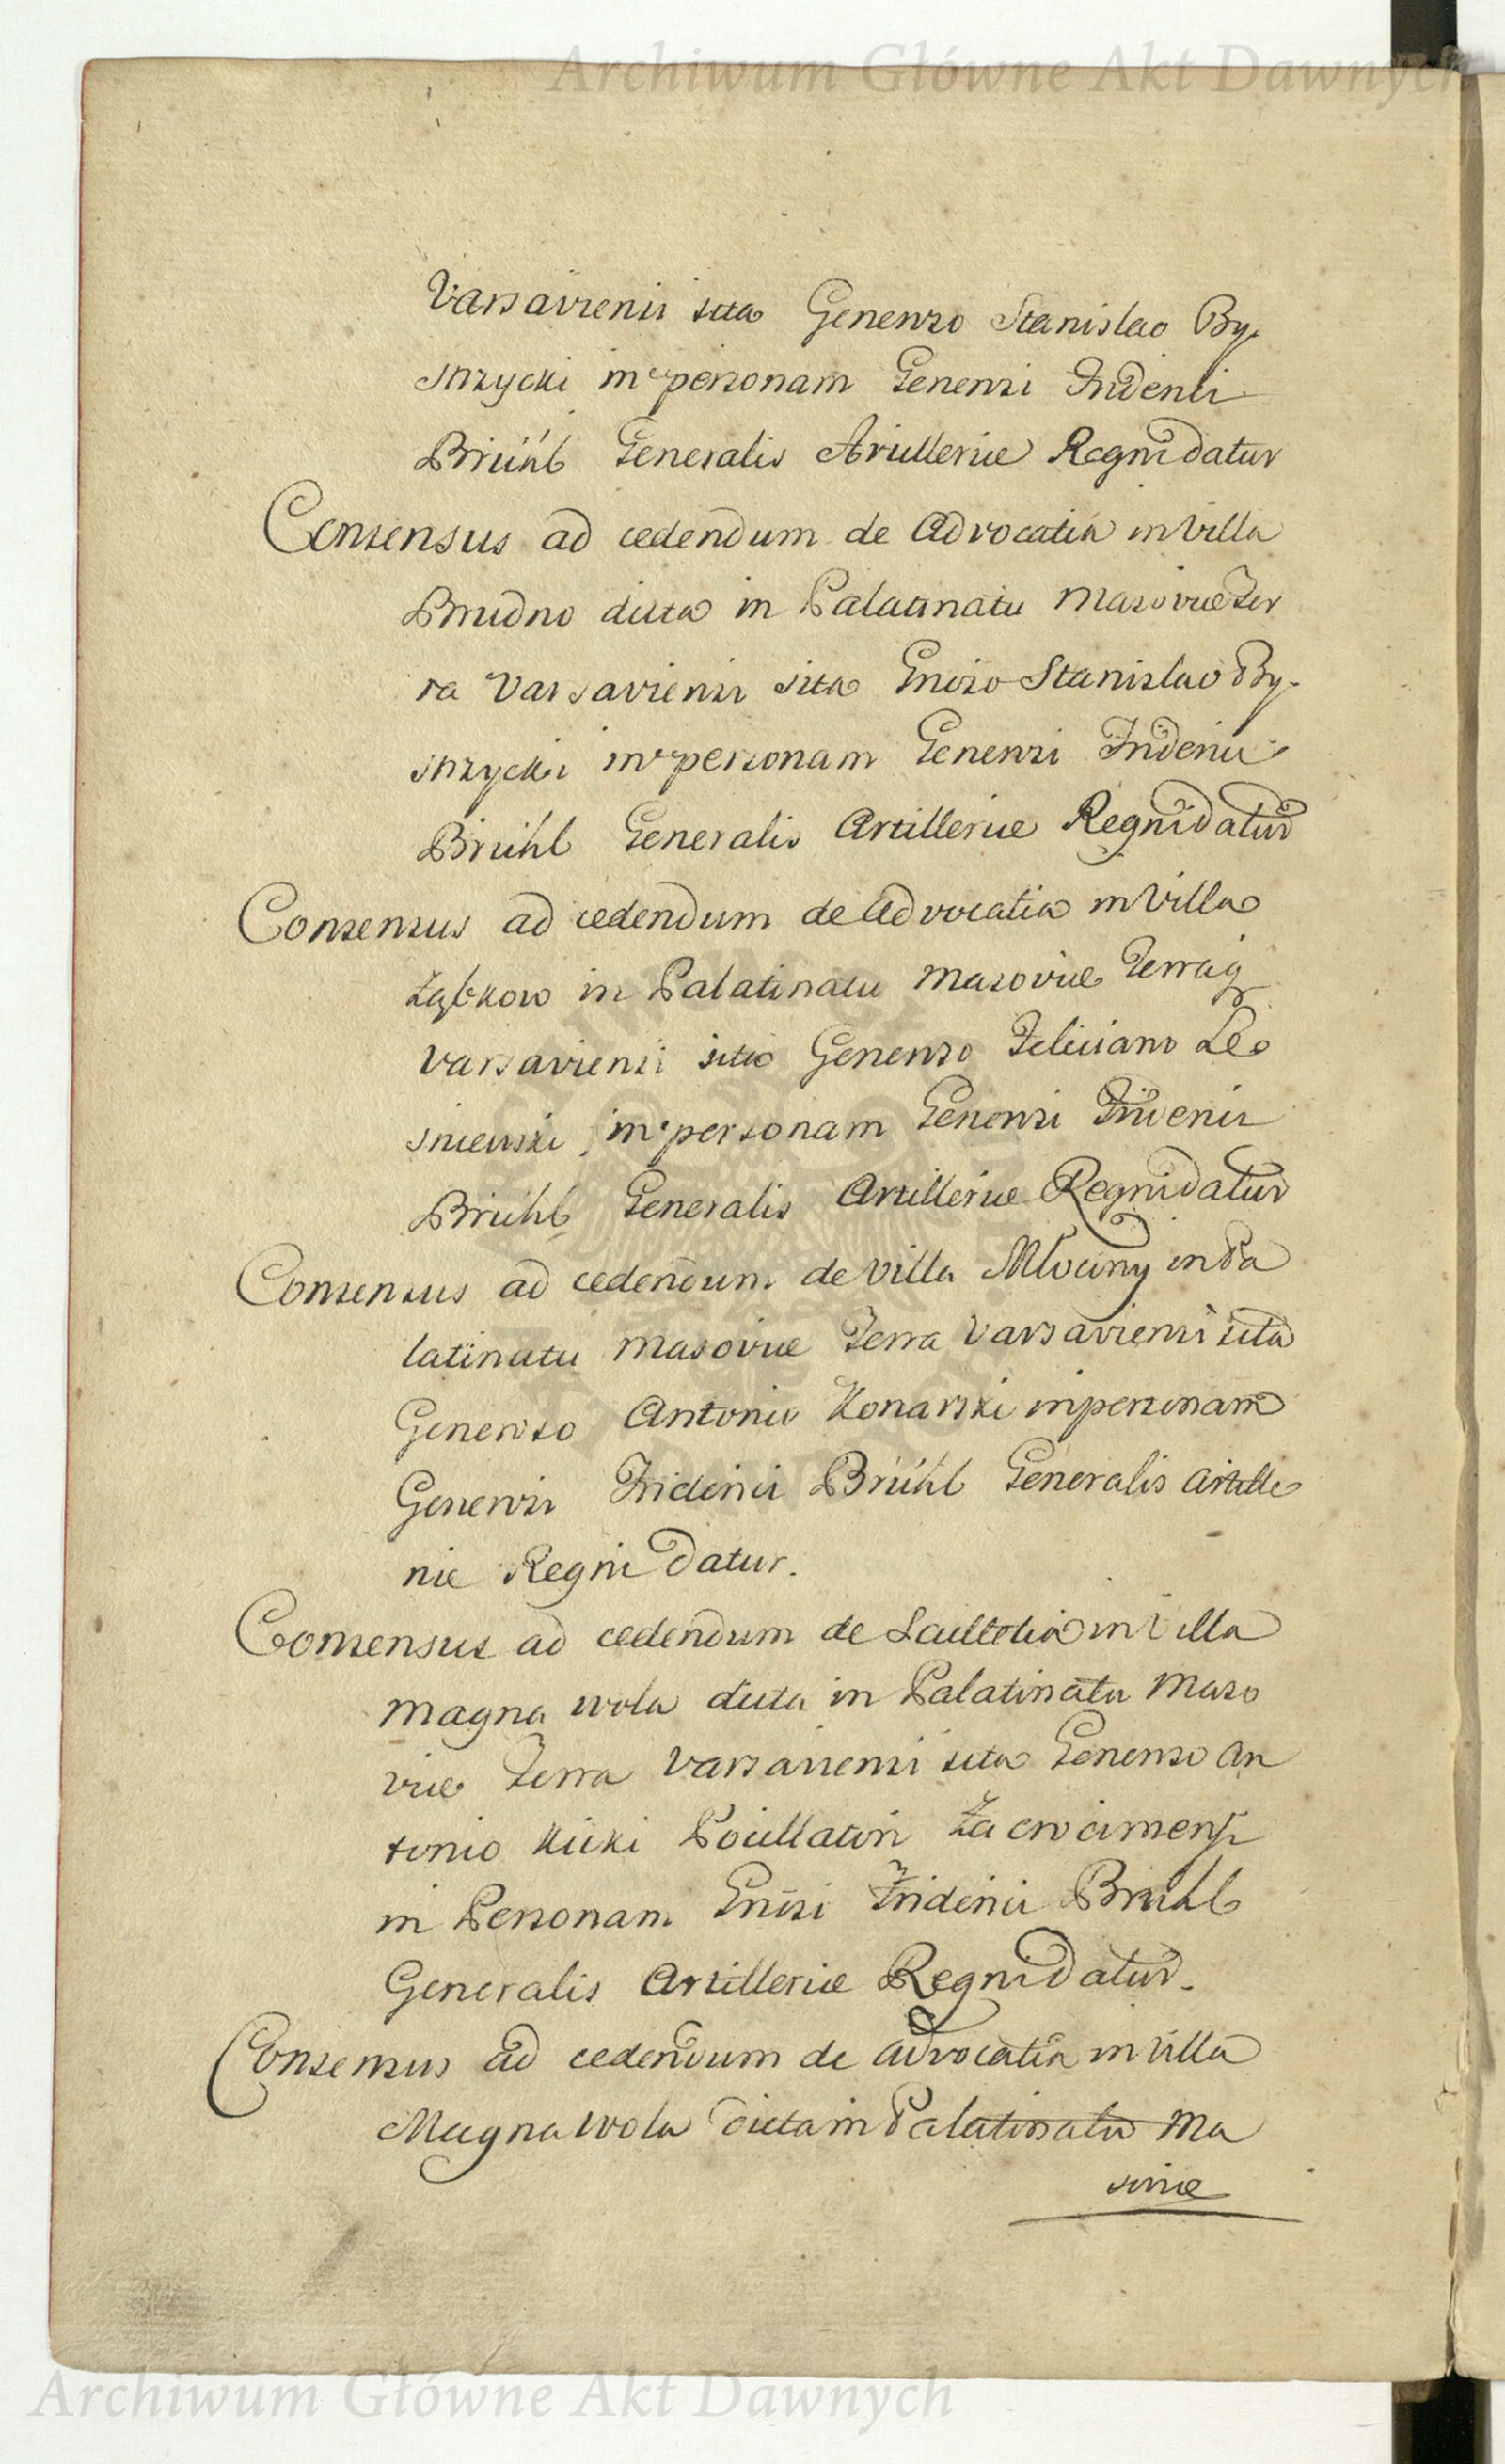 Archiwum Główne Akt Dawnych
Varsaviensi sita Generoso Stanislao By-
strzycki in personam Generosi Friderici
Brühl Generalis Artilleriæ Regni datur
Consensus ad cedendum de Advocatia in Villa
Brudno dicta in Palatinatu Masoviæ Ter
ra Varsaviensi sita Gnoso Stanislao By-
strzycki in personam Generosi Friderici
Brühl Generalis Artilleriæ Regni datur
Consensus ad cedendum de Advocatia in Villa
Ząbkow in Palatinatu Masoviæ Terraq
Varsaviensi sita Generoso Feliciano Le
sniewski, in personam Generosi Friderici
Brühl Generalis Artilleriæ Regni datur
Consensus ad cedendum de Villa Młociny in Pa
latinatu Masoviæ Terra Varsaviensi sita
Generoso Antonio Konarski in personam
Generosi Friderici Brühl Generalis Artille
riæ Regni datur.
Consensus ad cedendum de Scultetia in Villa
Magna Wola dicta in Palatinatu Maso
viæ Terra Varsaviensi sita Generoso An
tonio Kicki Pocillatori Zacrocimensi
in Personam Gnosi Friderici Brühl
Generalis Artilleriæ Regni datur.
Consensus ad cedendum de Advocatia in Villa
Magna Wola dicta in Palatinatu Ma
soviæ
Archiwum Główne Akt Dawnych